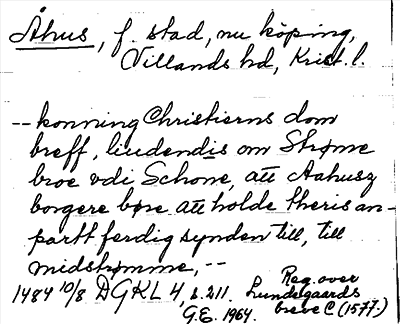 Åhus, f. stad, nu köping,
Villands hd, Krist. l.
-- konning Christierns dom
breff, liudendis om Strøme
broe vdi Schone, att Aahusz
borgere børe att holde theris an-
partt ferdig synden till, till
midstrømme, --
1484 10/8 DGKL 4, s. 211. Reg. over
Lundegaards
G.E. 1964. breve C (1577.)